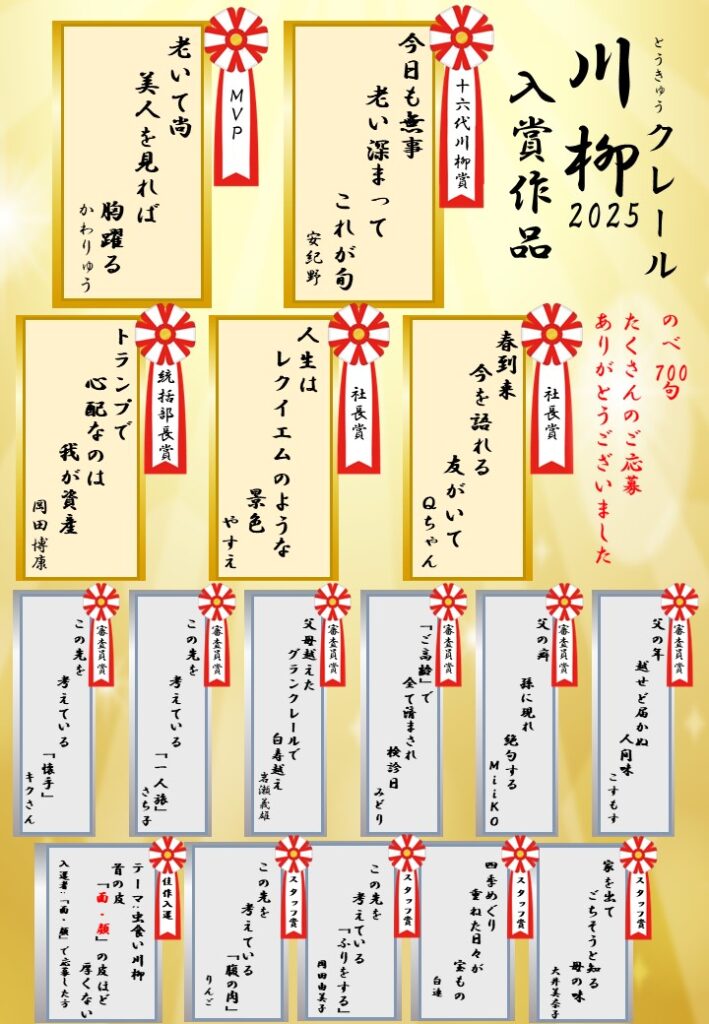 とうきゅう
クレール
川柳
2025
入賞作品
のべ700句
たくさんのご応募
ありがとうございました
十六代川柳賞
今日も無事
老い深まって
これが旬
安紀野
MVP
老いて尚
美人を見れば
胸躍る
かわりゅう
社長賞
春到来
今を語れる
友がいて
Qちゃん
社長賞
人生は
レクイエムのような
景色
やすえ
統括部長賞
トランプで
心配なのは
我が資産
岡田博康
審査員賞
父の年
越せど届かぬ
人間味
こすもす
審査員賞
父の癖
孫に現れ
絶句する
MiiKO
審査員賞
「ご高齢」で
全て済まされ
検診日
みどり
審査員賞
父母越えた
グランクレールで
白寿越え
岩瀬義雄
審査員賞
この先を
考えている
「一人旅」
さち子
審査員賞
この先を
考えている
「懐手」
キクさん
スタッフ賞
家を出て
ごちそうと知る
母の味
大井美奈子
スタッフ賞
四季めぐり
重ねた日々が
宝もの
白連
スタッフ賞
この先を
考えている
「ふりをする」
岡田由美子
スタッフ賞
この先を
考えている
「腹の肉」
りんご
佳作入選
テーマ:虫食い川柳
首の皮
「面・顔」の皮ほど
厚くない
入選者:「面・顔」で応募した方